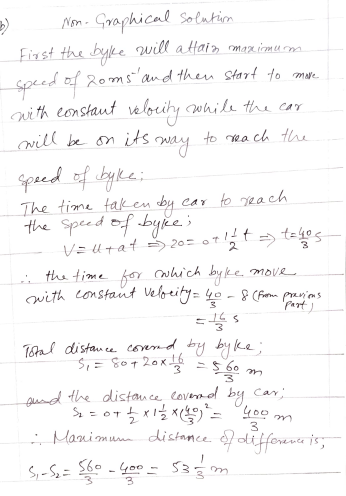 b) Non-Graphical Solution
First the byke will attain maximum
speed of 20ms⁻¹ and then start to move
with constant velocity while the car
will be on its way to reach the
speed of byke;
The time taken by car to reach
the speed of byke;
V=u+at ⇒ 20= 0+1 1/2 t ⇒ t=40/3 s
∴ the time for which byke move
with constant velocity= 40/3 - 8 (from previous part)
= 16/3 s
Total distance covered by byke;
S₁ = 80+20×16/3 = 560/3 m
and the distance covered by car;
S₂ = 0+ 1/2 ×1 1/2 ×(40/3)² = 400/3 m
∴ Maximum distance of difference is;
S₁-S₂= 560/3 - 400/3 = 53 1/3 m